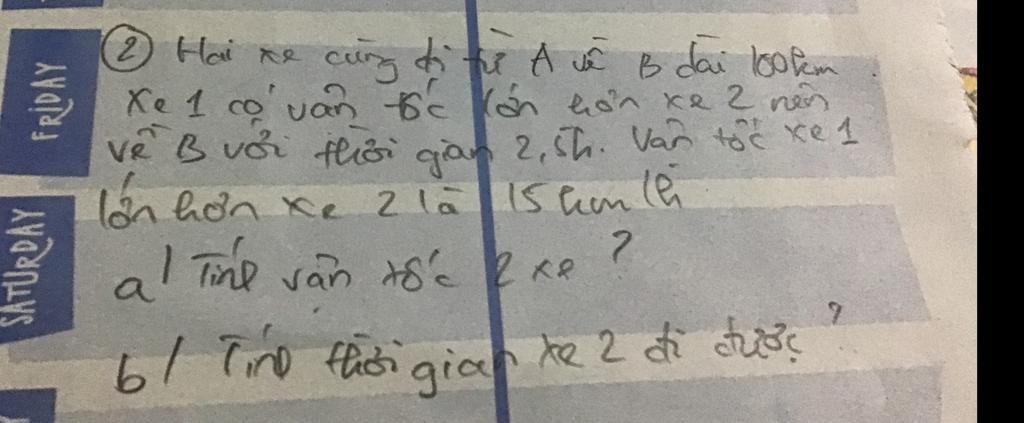 FRIDAY
SATURDAY
② Hai xe cùng đi từ A về B dài 100km.
Xe 1 có vận tốc lớn hơn xe 2 nên
về B với thời gian 2,5h. Vận tốc xe 1
lớn hơn xe 2 là 15 km/h
a/ Tính vận tốc 2 xe?
b/ Tính thời gian xe 2 đi được?